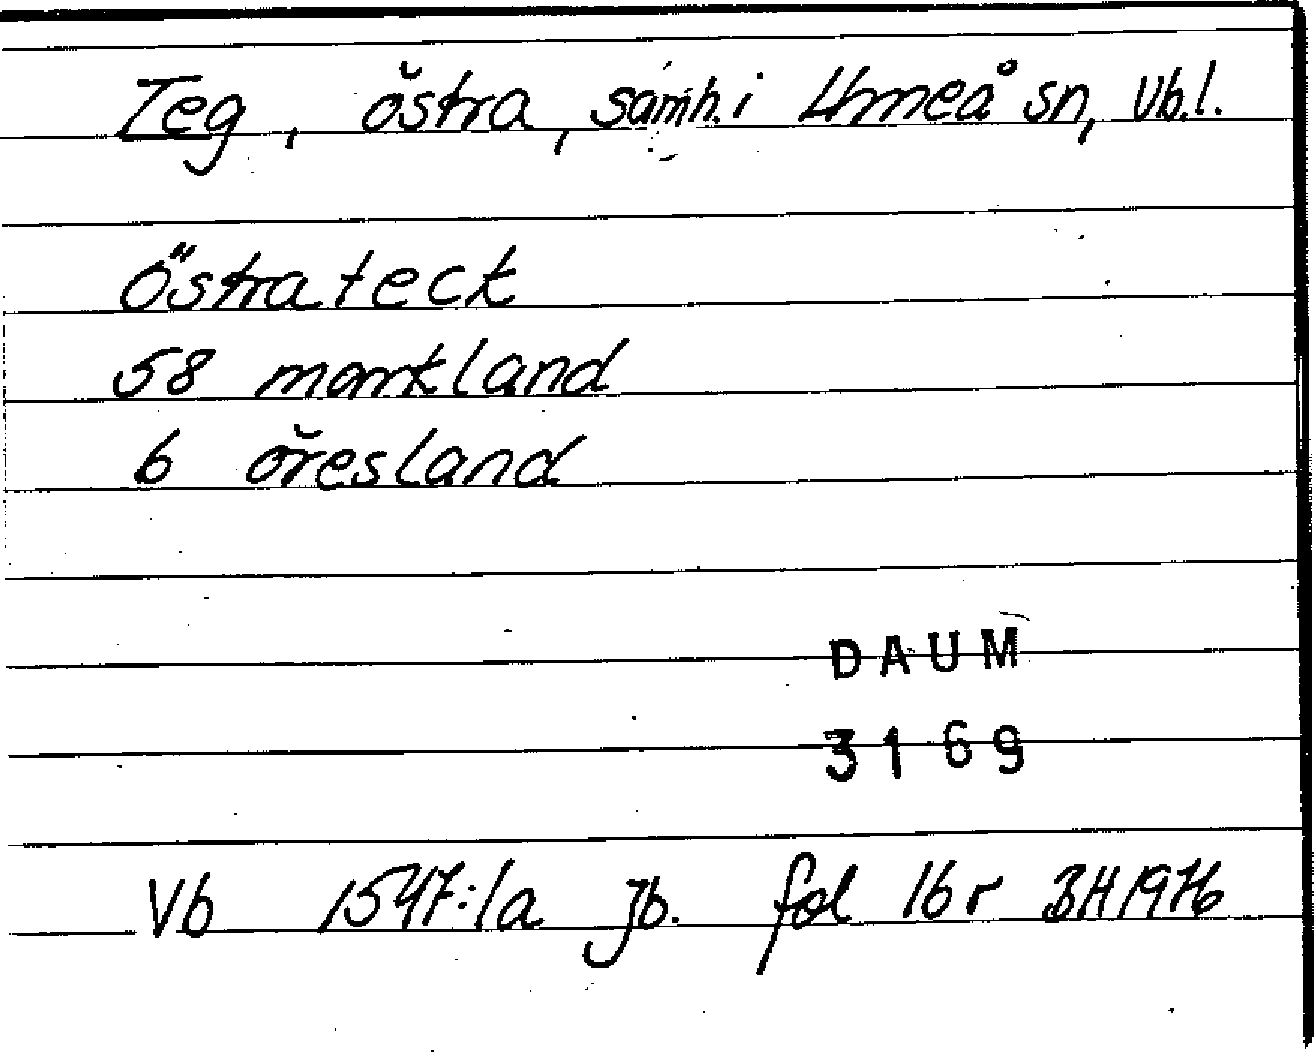 Teg, östra, samh. i Umeå sn, Vb.l.
Östrateck
58 markland
6 öresland
DAUM
3169
Vb 1547:1a jb. fol 16 r BH 1976